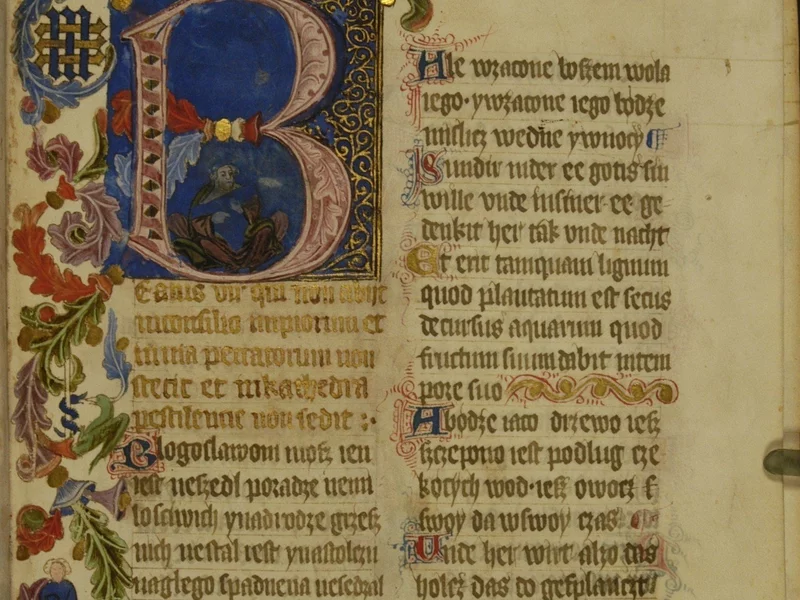 Beatus vir qui non abijt
inconsilio impiorum et
inuia peccatorum non
stetit et inkathedra
pestilencie non sedit :·
Blogoslawoni mosz ien
iest neszedl poradze nemi
losciwich ynadrodze grzesz
nich nestal iest ynastolczu
naglego spadnena nesedzal
Ale wzacone boszem wola
iego· ywzacone iego bodze
mislicz wedne ywnocy
Sundir nider ee gotis sin
wille vnde insiner ee ge
denkit her tak vnde nacht
Et erit tamquam lignum
quod plantatum est secus
decursus aquarum quod
fructum suum dabit intem
pore suo
Abodze iaco drzewo iesz
szczepono iest podlug cze
kocych wod· iesz owocz s
swoy da wswoy czas
Unde her wirt alzo das
holcz das do gesplanczt